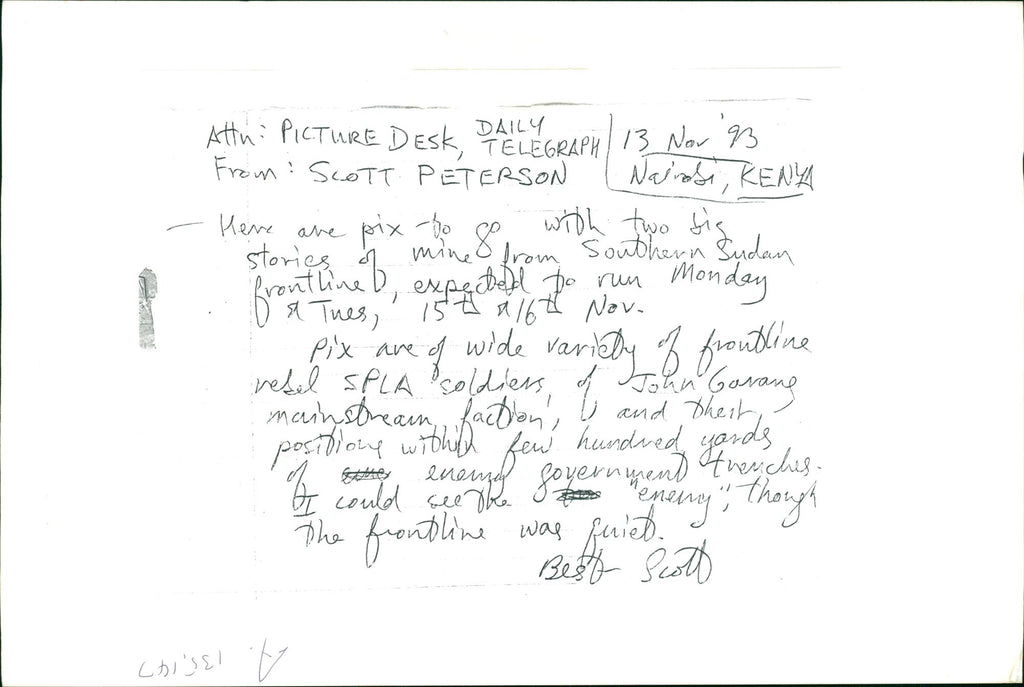 Attn: PICTURE DESK, DAILY TELEGRAPH
From: SCOTT PETERSON
13 Nov '93
Nairobi, KENYA
— Here are pix to go with two big
stories of mine from Southern Sudan
frontline, expected to run Monday
& Tues, 15th & 16th Nov.
Pix are of wide variety of frontline
rebel SPLA soldiers, of John Garang
mainstream faction, and their
positions within few hundred yards
of enemy government trenches.
I could see the "enemy", though
the frontline was quiet.
Best Scott
135,147